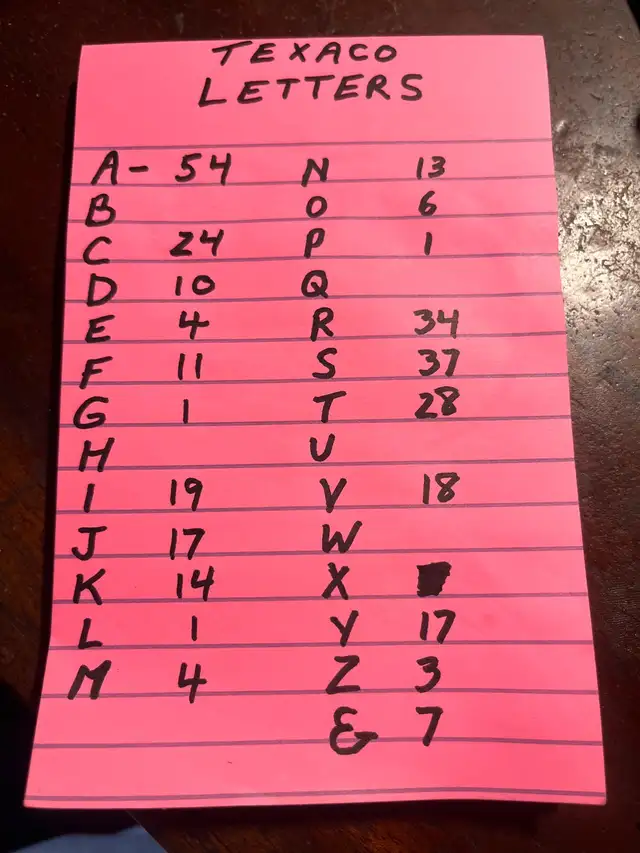 TEXACO
LETTERS
A- 54 N 13
B O 6
C 24 P 1
D 10 Q
E 4 R 34
F 11 S 37
G 1 T 28
H U
I 19 V 18
J 17 W
K 14 X
L 1 Y 17
M 4 Z 3
& 7